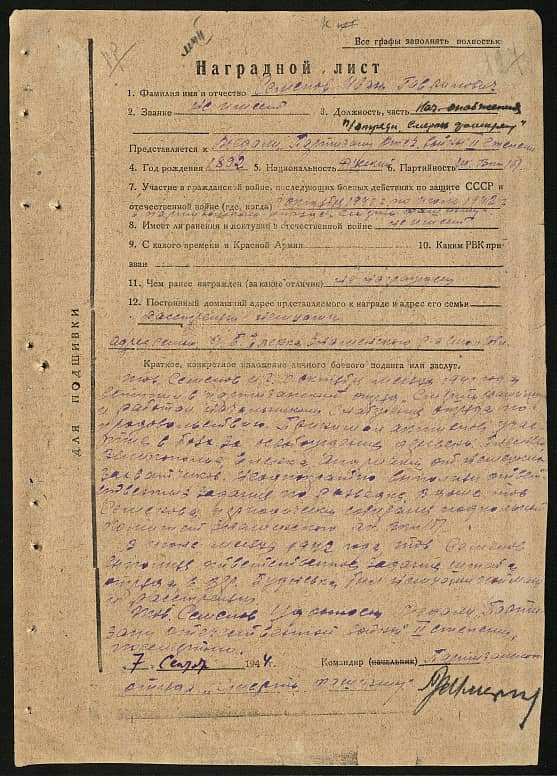 Все графы заполнять полностью
Наградной лист
1. Фамилия имя и отчество Семенов Иван Гаврилович
2. Звание не имеет 3. Должность, часть Нач. снабжения
п/отряда „Смерть фашизму"
Представляется к медали Партизану Отеч. войны II степени
4. Год рождения 1892 5. Национальность Русский 6. Партийность чл. ВКП(б)
7. Участие в гражданской войне, последующих боевых действиях по защите СССР и
отечественной войне (где, когда) с октября 1941 г. по июнь 1942 г.
в партизанском отряде „Смерть фашизму"
8. Имеет ли ранения и контузии в отечественной войне не имеет
9. С какого времени в Красной Армии 10. Каким РВК при-
зван
11. Чем ранее награжден (за какие отличия) не награжден
12. Постоянный домашний адрес представляемого к награде и адрес его семьи
Расстрелян немцами
адрес семьи
Краткое, конкретное изложение личного боевого подвига или заслуг.
Тов. Семенов И.Г. с октября месяца 1941 года
вступил в партизанский отряд „Смерть фашизму"
и работал начальником снабжения отряда по
продовольствию. Принимал активное учас-
тие в боях за освобождение деревень
от немецких
захватчиков. Неоднократно выполнял ответ-
ственные задания по разведке. В доме тов.
Семенова периодически собирался подпольный
В июне месяце 1942 года тов. Семенов
выполняя ответственное задание штаба
отряда в дер. был немцами пойман
и расстрелян.
Тов. Семенов удостоен медали Парти-
зану отечественной войны II степени,
посмертно.
7 194 4 г. Командир (начальник) Партизанского
отряда „Смерть фашизму"
ДЛЯ ПОДШИВКИ